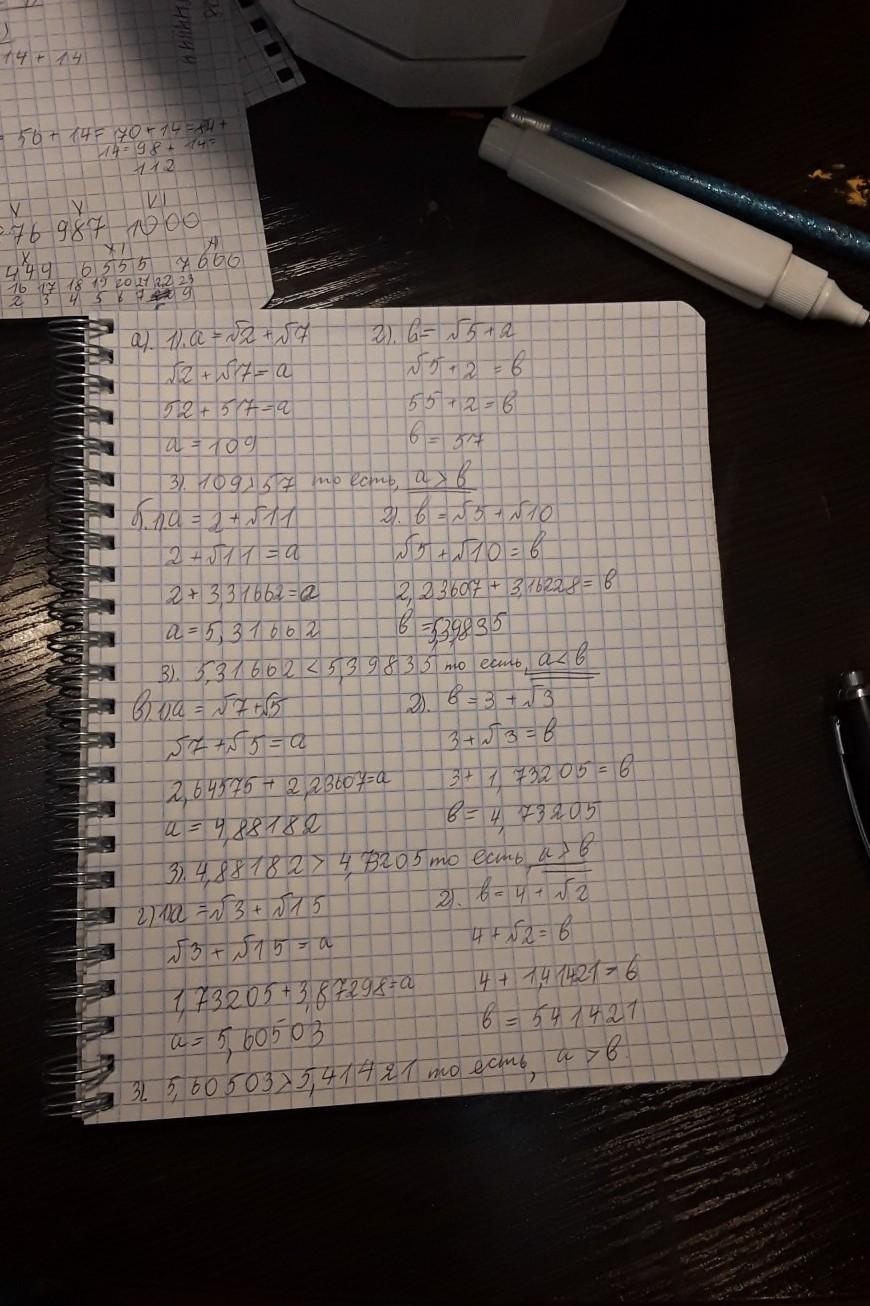 14 + 14
56 + 14 = 70 + 14 = 84 +
14 = 98 + 14 =
112
V V VI
76 987 1000
X XI
449 6555 7666
16 17 18 19 20 21 22 23
2 3 4 5 6 7 9
а). 1). а = √2 + √7 2). в = √5 + 2
√2 + √7 = а √5 + 2 = в
52 + 57 = а 55 + 2 = в
а = 109 в = 57
3). 109 > 57 то есть, а > в
б). 1) а = 2 + √11 2). в = √5 + √10
2 + √11 = а √5 + √10 = в
2 + 3,31662 = а 2,23607 + 3,16228 = в
а = 5,31662 в = 5,39835
3). 5,31662 < 5,39835 то есть, а < в
в). 1) а = √7 + √5 2). в = 3 + √3
√7 + √5 = а 3 + √3 = в
2,64575 + 2,23607 = а 3 + 1,73205 = в
а = 4,88182 в = 4,73205
3). 4,88182 > 4,73205 то есть, а > в
г). 1) а = √3 + √15 2). в = 4 + √2
√3 + √15 = а 4 + √2 = в
1,73205 + 3,87298 = а 4 + 1,41421 = в
а = 5,60503 в = 541421
3). 5,60503 > 5,41421 то есть, а > в